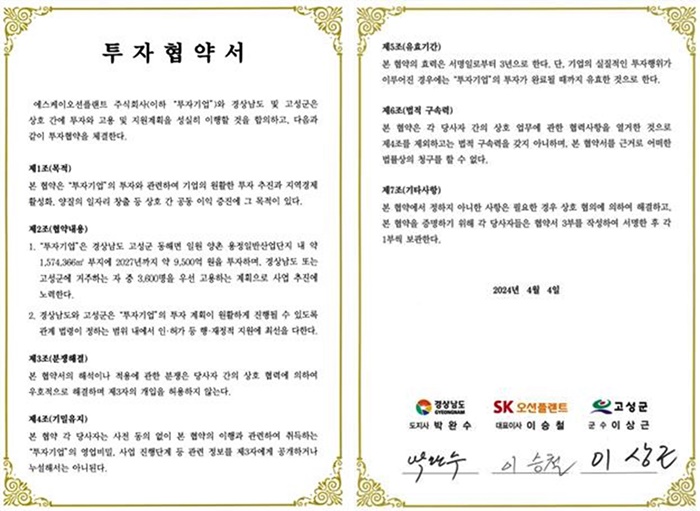 투자협약서
에스케이오션플랜트 주식회사(이하 "투자기업")와 경상남도 및 고성군은
상호 간에 투자와 고용 및 지원계획을 성실히 이행할 것을 합의하고, 다음과
같이 투자협약을 체결한다.
제1조(목적)
본 협약은 "투자기업"의 투자와 관련하여 기업의 원활한 투자 추진과 지역경제
활성화, 양질의 일자리 창출 등 상호 간 공동 이익 증진에 그 목적이 있다.
제2조(협약내용)
1. "투자기업"은 경상남도 고성군 동해면 일원 양촌 용정일반산업단지 내 약
1,574,366㎡ 부지에 2027년까지 약 9,500억 원을 투자하며, 경상남도 또는
고성군에 거주하는 자 중 3,600명을 우선 고용하는 계획으로 사업 추진에
노력한다.
2. 경상남도와 고성군은 "투자기업"의 투자 계획이 원활하게 진행될 수 있도록
관계 법령이 정하는 범위 내에서 인·허가 등 행·재정적 지원에 최선을 다한다.
제3조(분쟁해결)
본 협약서의 해석이나 적용에 관한 분쟁은 당사자 간의 상호 협력에 의하여
우호적으로 해결하며 제3자의 개입을 허용하지 않는다.
제4조(기밀유지)
본 협약 각 당사자는 사전 동의 없이 본 협약의 이행과 관련하여 취득하는
"투자기업"의 영업비밀, 사업 진행단계 등 관련 정보를 제3자에게 공개하거나
누설해서는 아니된다.
제5조(유효기간)
본 협약의 효력은 서명일로부터 3년으로 한다. 단, 기업의 실질적인 투자행위가
이루어진 경우에는 "투자기업"의 투자가 완료될 때까지 유효한 것으로 한다.
제6조(법적 구속력)
본 협약은 각 당사자 간의 상호 업무에 관한 협력사항을 열거한 것으로
제4조를 제외하고는 법적 구속력을 갖지 아니하며, 본 협약서를 근거로 어떠한
법률상의 청구를 할 수 없다.
제7조(기타사항)
본 협약에서 정하지 아니한 사항은 필요한 경우 상호 협의에 의하여 해결하고,
본 협약을 증명하기 위해 각 당사자들은 협약서 3부를 작성하여 서명한 후 각
1부씩 보관한다.
2024년 4월 4일
경상남도 GYEONGNAM SK 오션플랜트 고성군
도지사 박완수 대표이사 이승철 군수 이상근
박완수 이승철 이상근